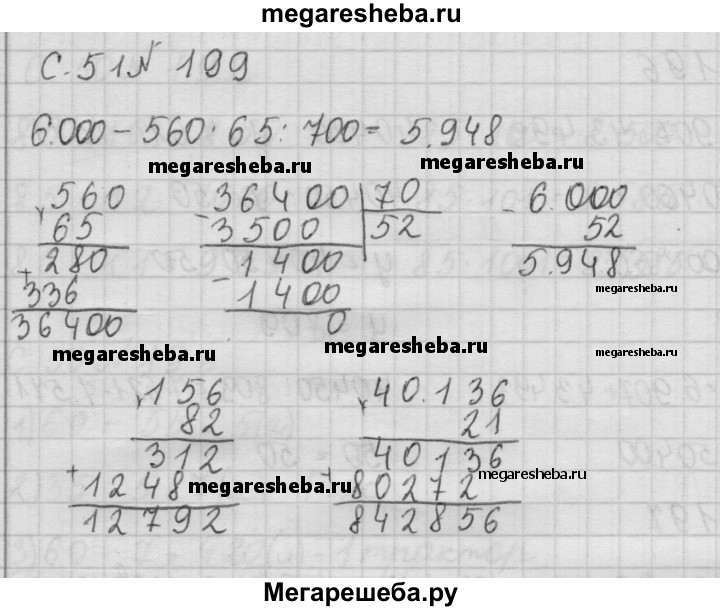 megaresheba.ru
С. 51 № 199
6.000 - 560 : 65 : 700 = 5.948
megaresheba.ru megaresheba.ru
560 36400 70 6.000
65 3500 52 52
280 1400 5.948
336 1400 megaresheba.ru
36400 0
megaresheba.ru megaresheba.ru megaresheba.ru
156 40.136
82 21
312 40136
1248 megaresheba.ru 80272 megaresheba.ru
12792 842856
Мегарешеба.ру